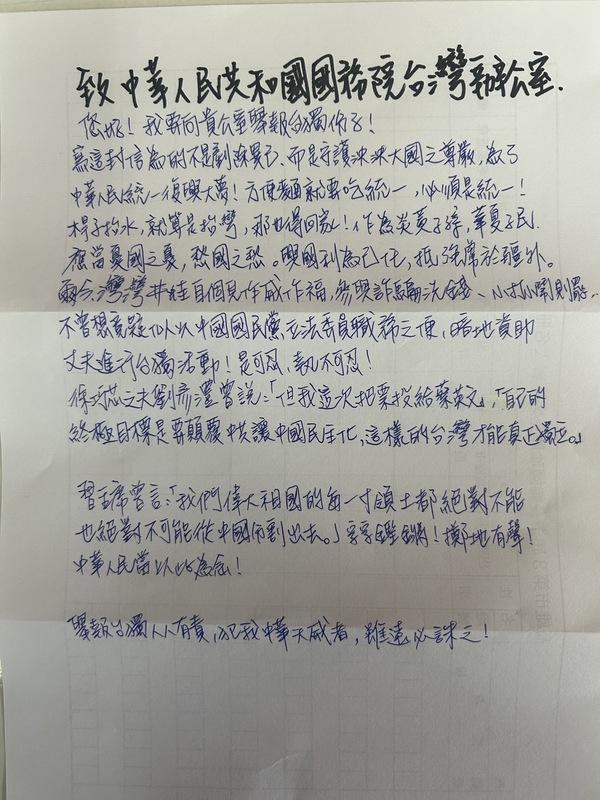 致中華人民共和國國務院台灣辦公室.
您好！我要向貴公室舉報台獨份子！
寫這封信為的不是剷除異己、而是守護泱泱大國之尊嚴，為了
中華人民統一復興大夢！方便麵就要吃統一，必須是統一！
桿子捞水，就算是捞彎，那也得回家！作為炎黃子孫，華夏子民
應當憂國之憂，愁國之愁。興國利為己任，抵強虜於疆外。
而今，灣灣井蛙自個兒作威作福，參與詐騙洗錢、小抓鬧則罷，
不曾想竟疑似以中國國民黨立法委員職務之便，暗地資助
丈夫進行台獨活動！是可忍，孰不可忍！
徐巧芯之夫劉彥澧曾說：「但我這次把票投給蔡英文」，「自己的
終極目標是要顛覆中共讓中國民主化，這樣的台灣才能真正獨立。」
習主席曾言：「我們偉大祖國的每一寸領土都絕對不能
也絕對不可能從中國分割出去。」字字鏗鏘！擲地有聲！
中華人民當以此為念！
舉報台獨人人有責，犯我中華天威者，雖遠必誅之！